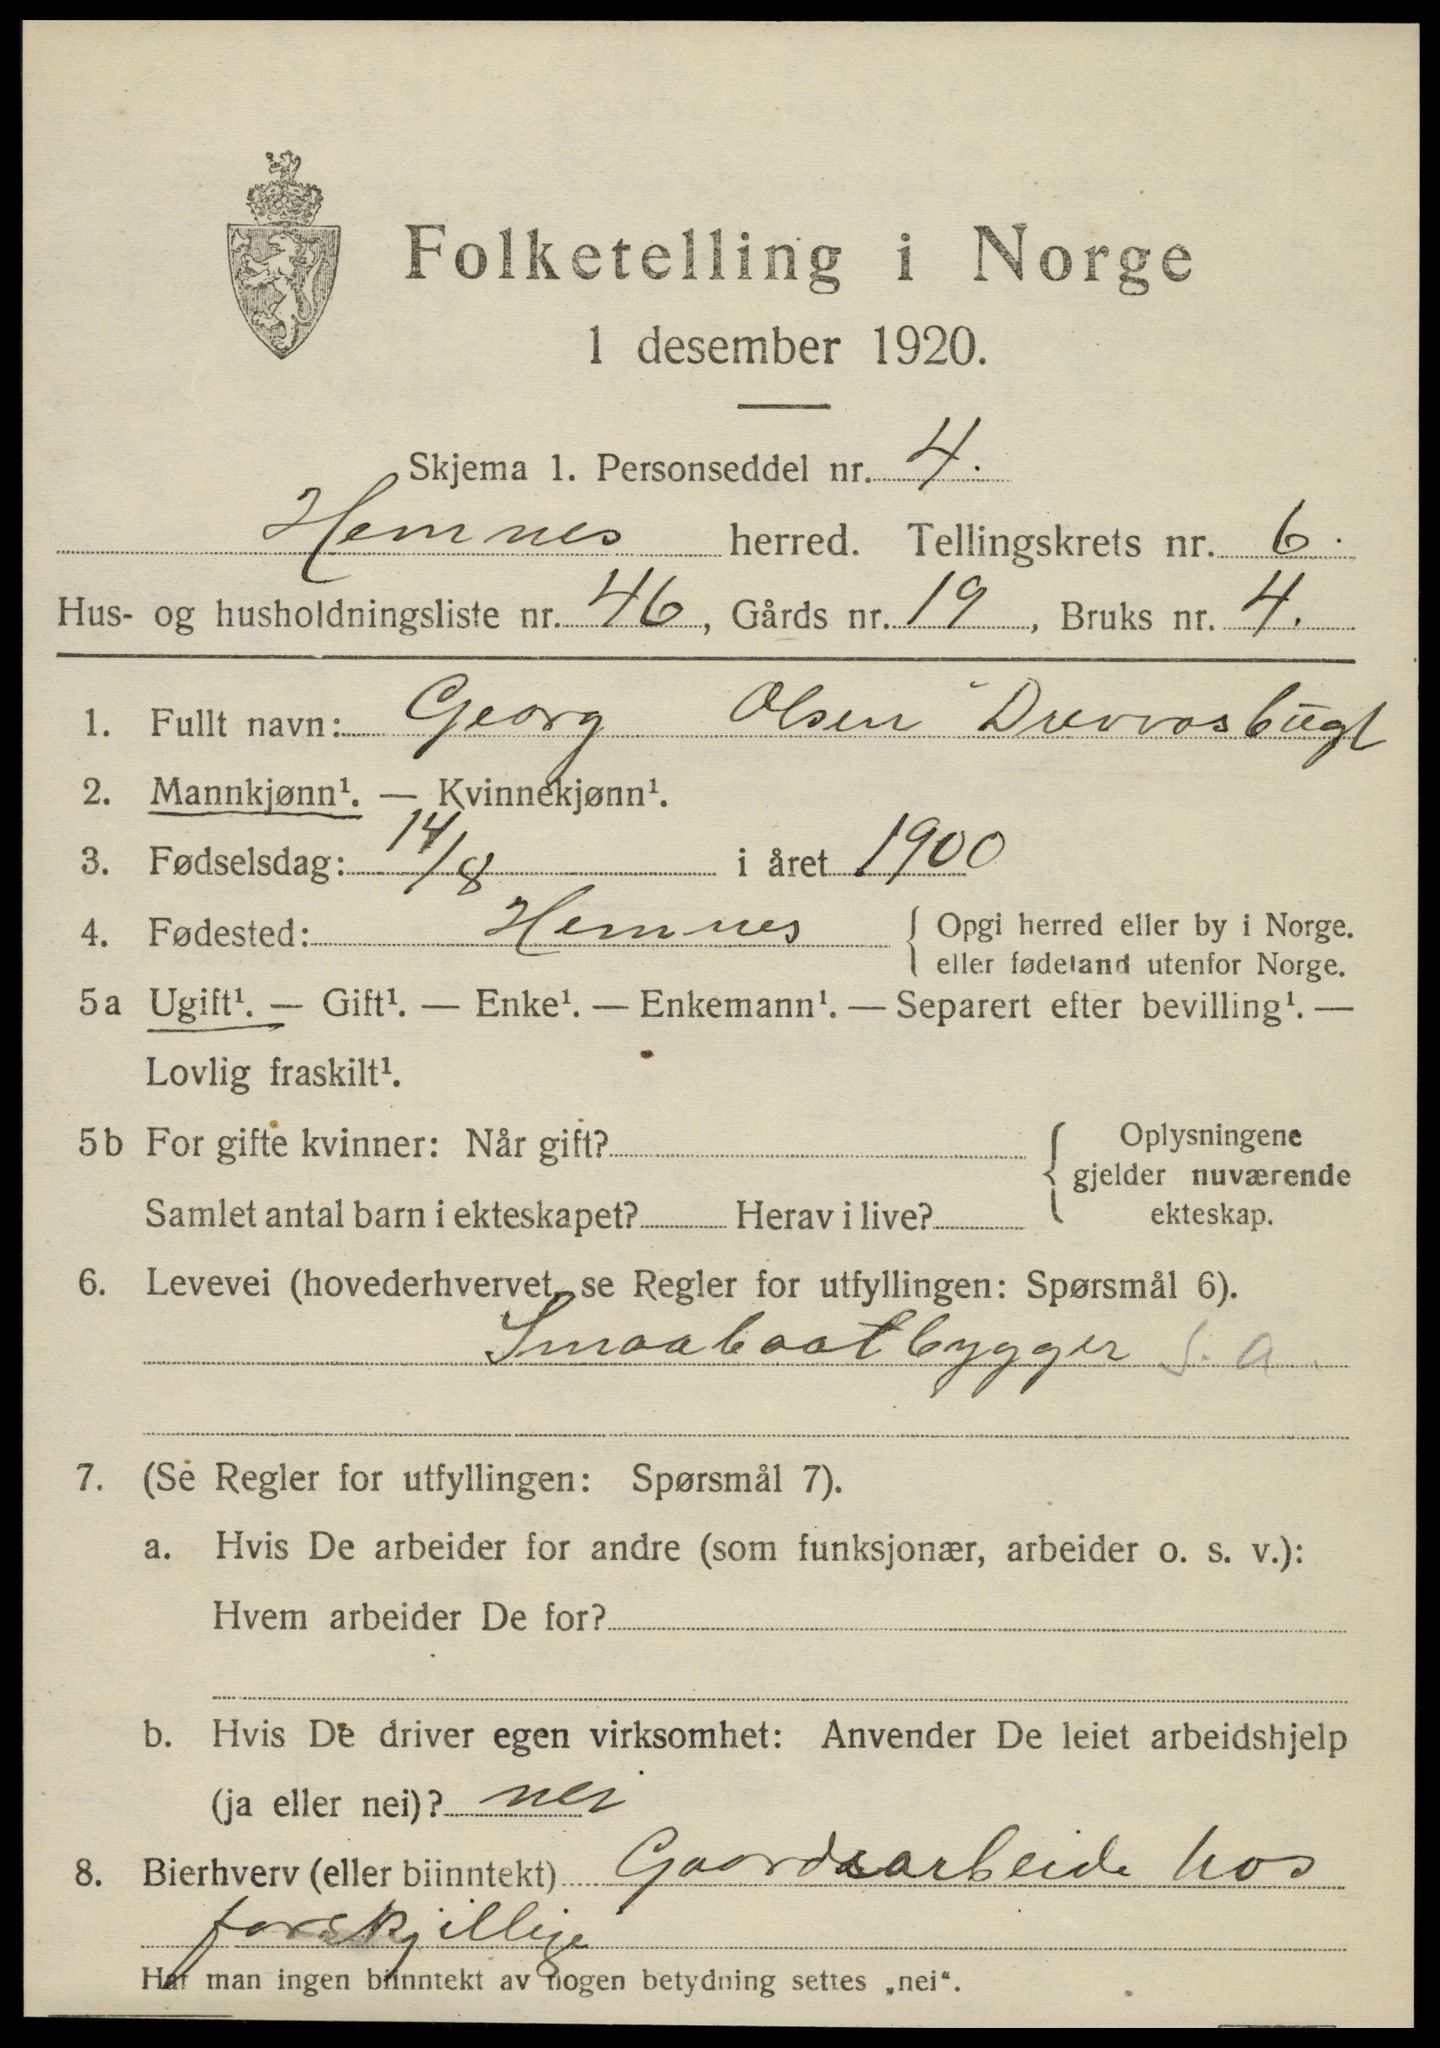 Folketelling i Norge
1 desember 1920.
Skjema 1. Personseddel nr. 4.
Hemnes herred. Tellingskrets nr. 6.
Hus- og husholdningsliste nr. 46, Gårds nr. 19, Bruks nr. 4.
1. Fullt navn: Georg Olsen
2. Mannkjønn¹. — Kvinnekjønn¹.
3. Fødselsdag: 14/8 i året 1900
4. Fødested: Hemnes { Opgi herred eller by i Norge.
eller fødeland utenfor Norge.
5a Ugift¹. — Gift¹. — Enke¹. — Enkemann¹. — Separert efter bevilling¹. —
Lovlig fraskilt¹.
5b For gifte kvinner: Når gift? { Oplysningene
gjelder nuværende
Samlet antal barn i ekteskapet? Herav i live? ekteskap.
6. Levevei (hovederhvervet, se Regler for utfyllingen: Spørsmål 6).
Smaabaatbygger S. a.
7. (Se Regler for utfyllingen: Spørsmål 7).
a. Hvis De arbeider for andre (som funksjonær, arbeider o. s. v.):
Hvem arbeider De for?
b. Hvis De driver egen virksomhet: Anvender De leiet arbeidshjelp
(ja eller nei)? nei
8. Bierhverv (eller biinntekt) Gaardsarbeide hos
forskjellige
Har man ingen biinntekt av nogen betydning settes „nei".